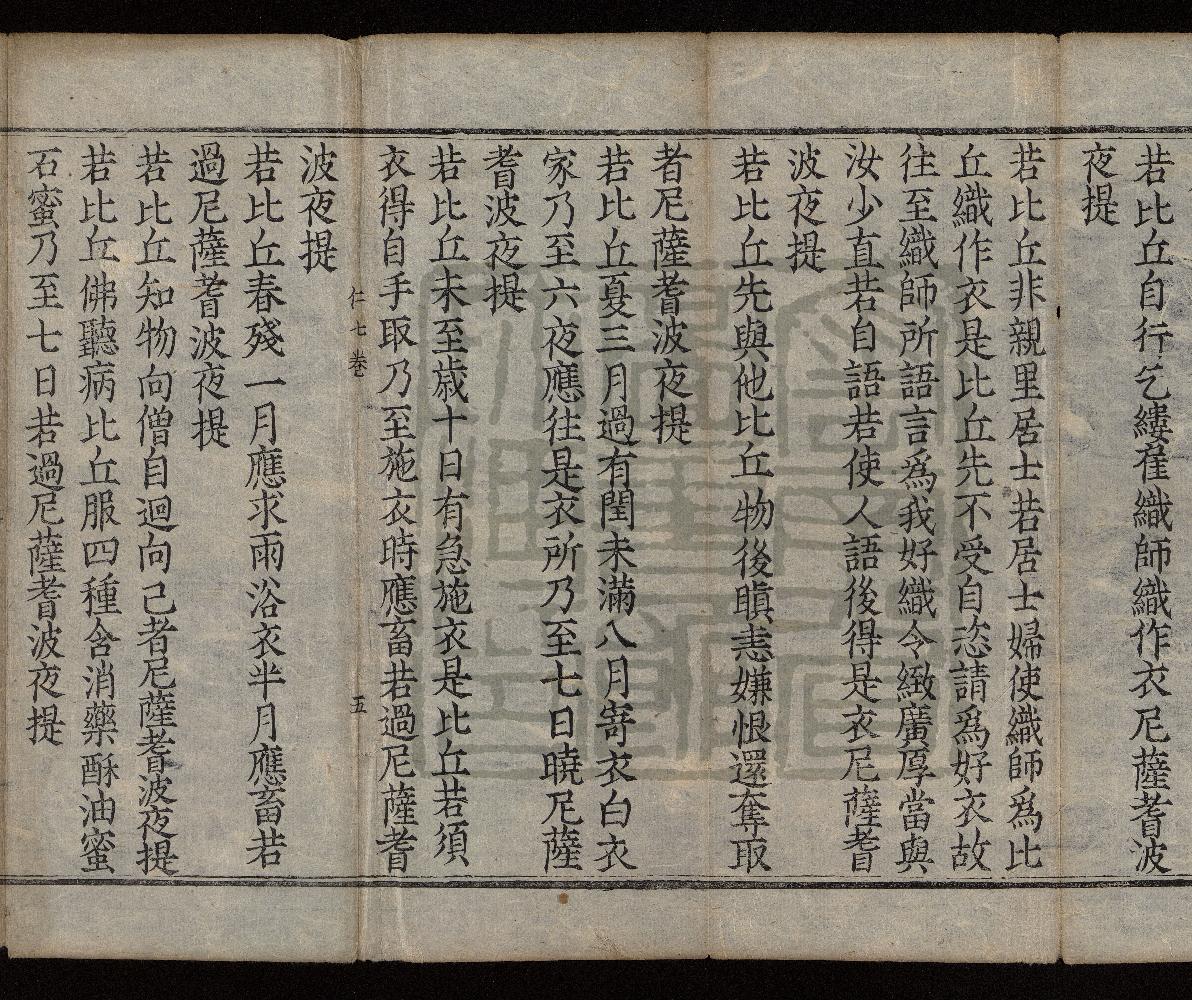 若比丘自行乞縷雇織師織作衣尼薩耆波
夜提
若比丘非親里居士若居士婦使織師爲比
丘織作衣是比丘先不受自恣請爲好衣故
往至織師所語言爲我好織令緻廣厚當與
汝少直若自語若使人語後得是衣尼薩耆
波夜提
若比丘先與他比丘物後瞋恚嫌恨還奪取
者尼薩耆波夜提
若比丘夏三月過有閏未滿八月寄衣白衣
家乃至六夜應往是衣所乃至七日曉尼薩
耆波夜提
若比丘未至歲十日有急施衣是比丘若須
衣得自手取乃至施衣時應畜若過尼薩耆
仁七卷 五
波夜提
若比丘春殘一月應求雨浴衣半月應畜若
過尼薩耆波夜提
若比丘知物向僧自迴向己者尼薩耆波夜提
若比丘佛聽病比丘服四種含消藥酥油蜜
石蜜乃至七日若過尼薩耆波夜提